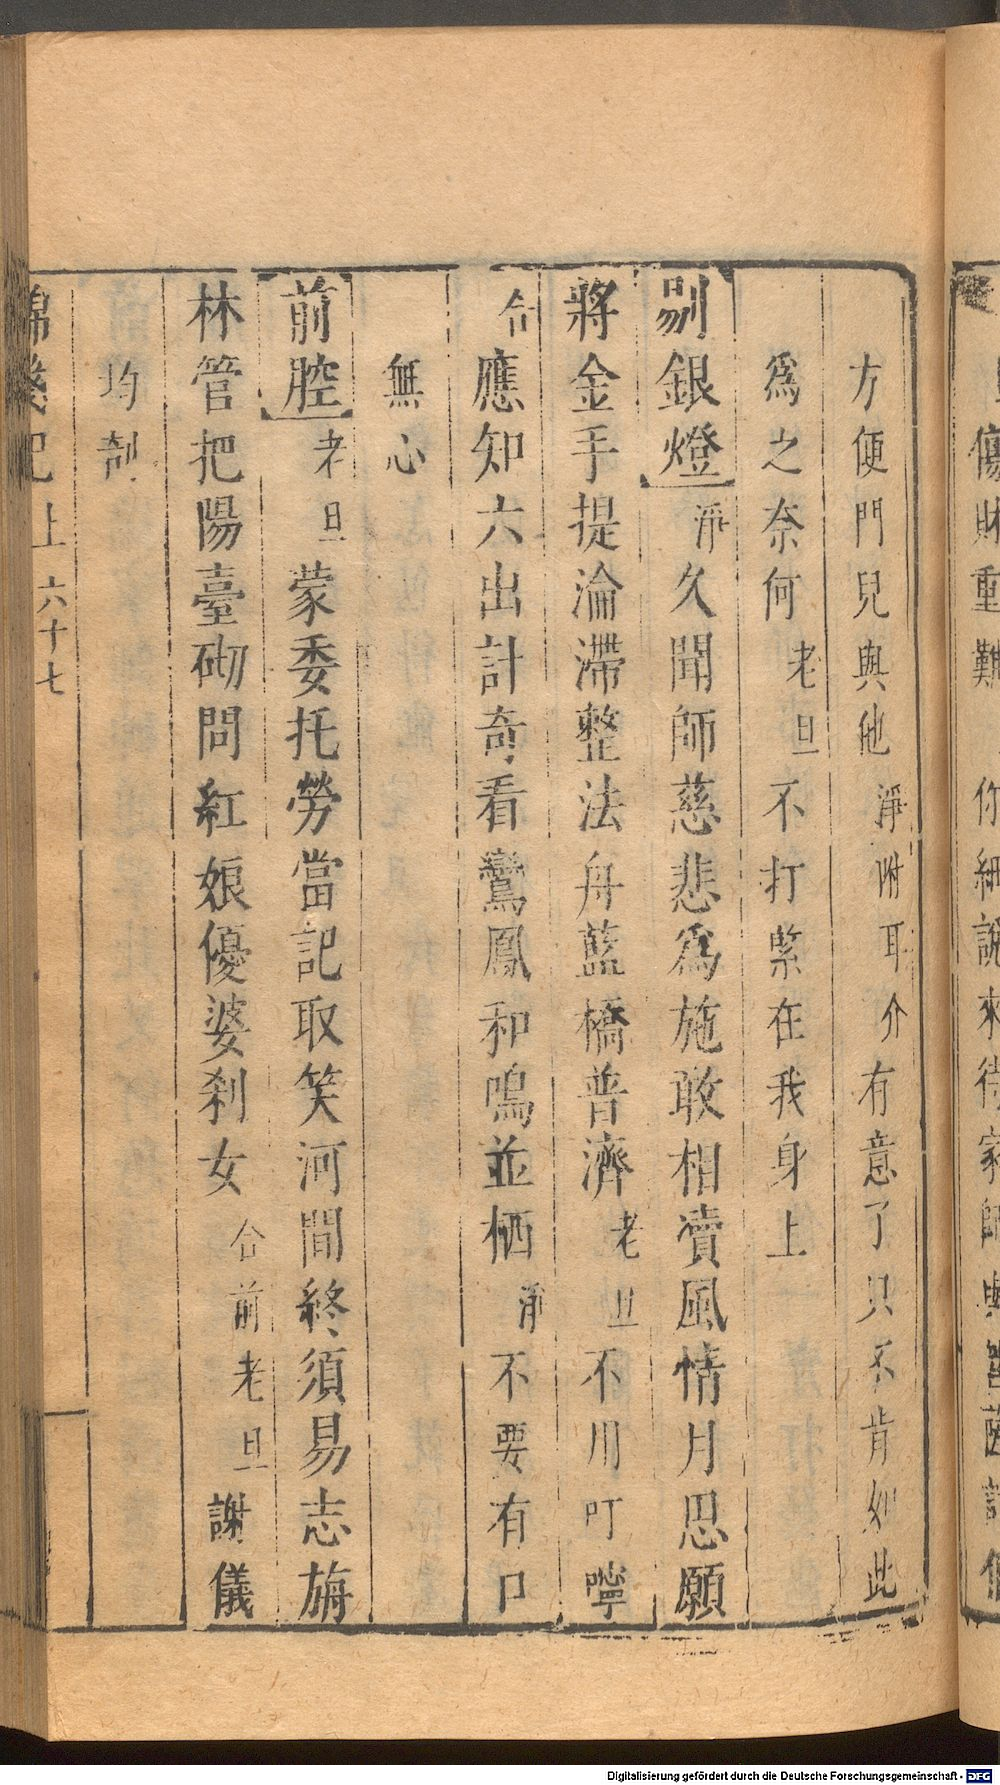 方便門兒與他淨附耳介有意了只不肯如此
爲之奈何老旦不打緊在我身上
剔銀燈淨久聞師慈悲爲施敢相賣風情月思願
將金手提淪滯整法舟藍橋普濟老旦不用叮嚀
合應知六出計奇看鸞鳳和鳴並栖淨不要有口
無心
前腔老旦蒙委托勞當記取笑河間終須易志旃
林管把陽臺砌問紅娘優婆刹女合前老旦謝儀
均剖
錦箋記上六十七
傷財重難 你細說來待家師與
Digitalisierung gefördert durch die Deutsche Forschungsgemeinschaft - DFG